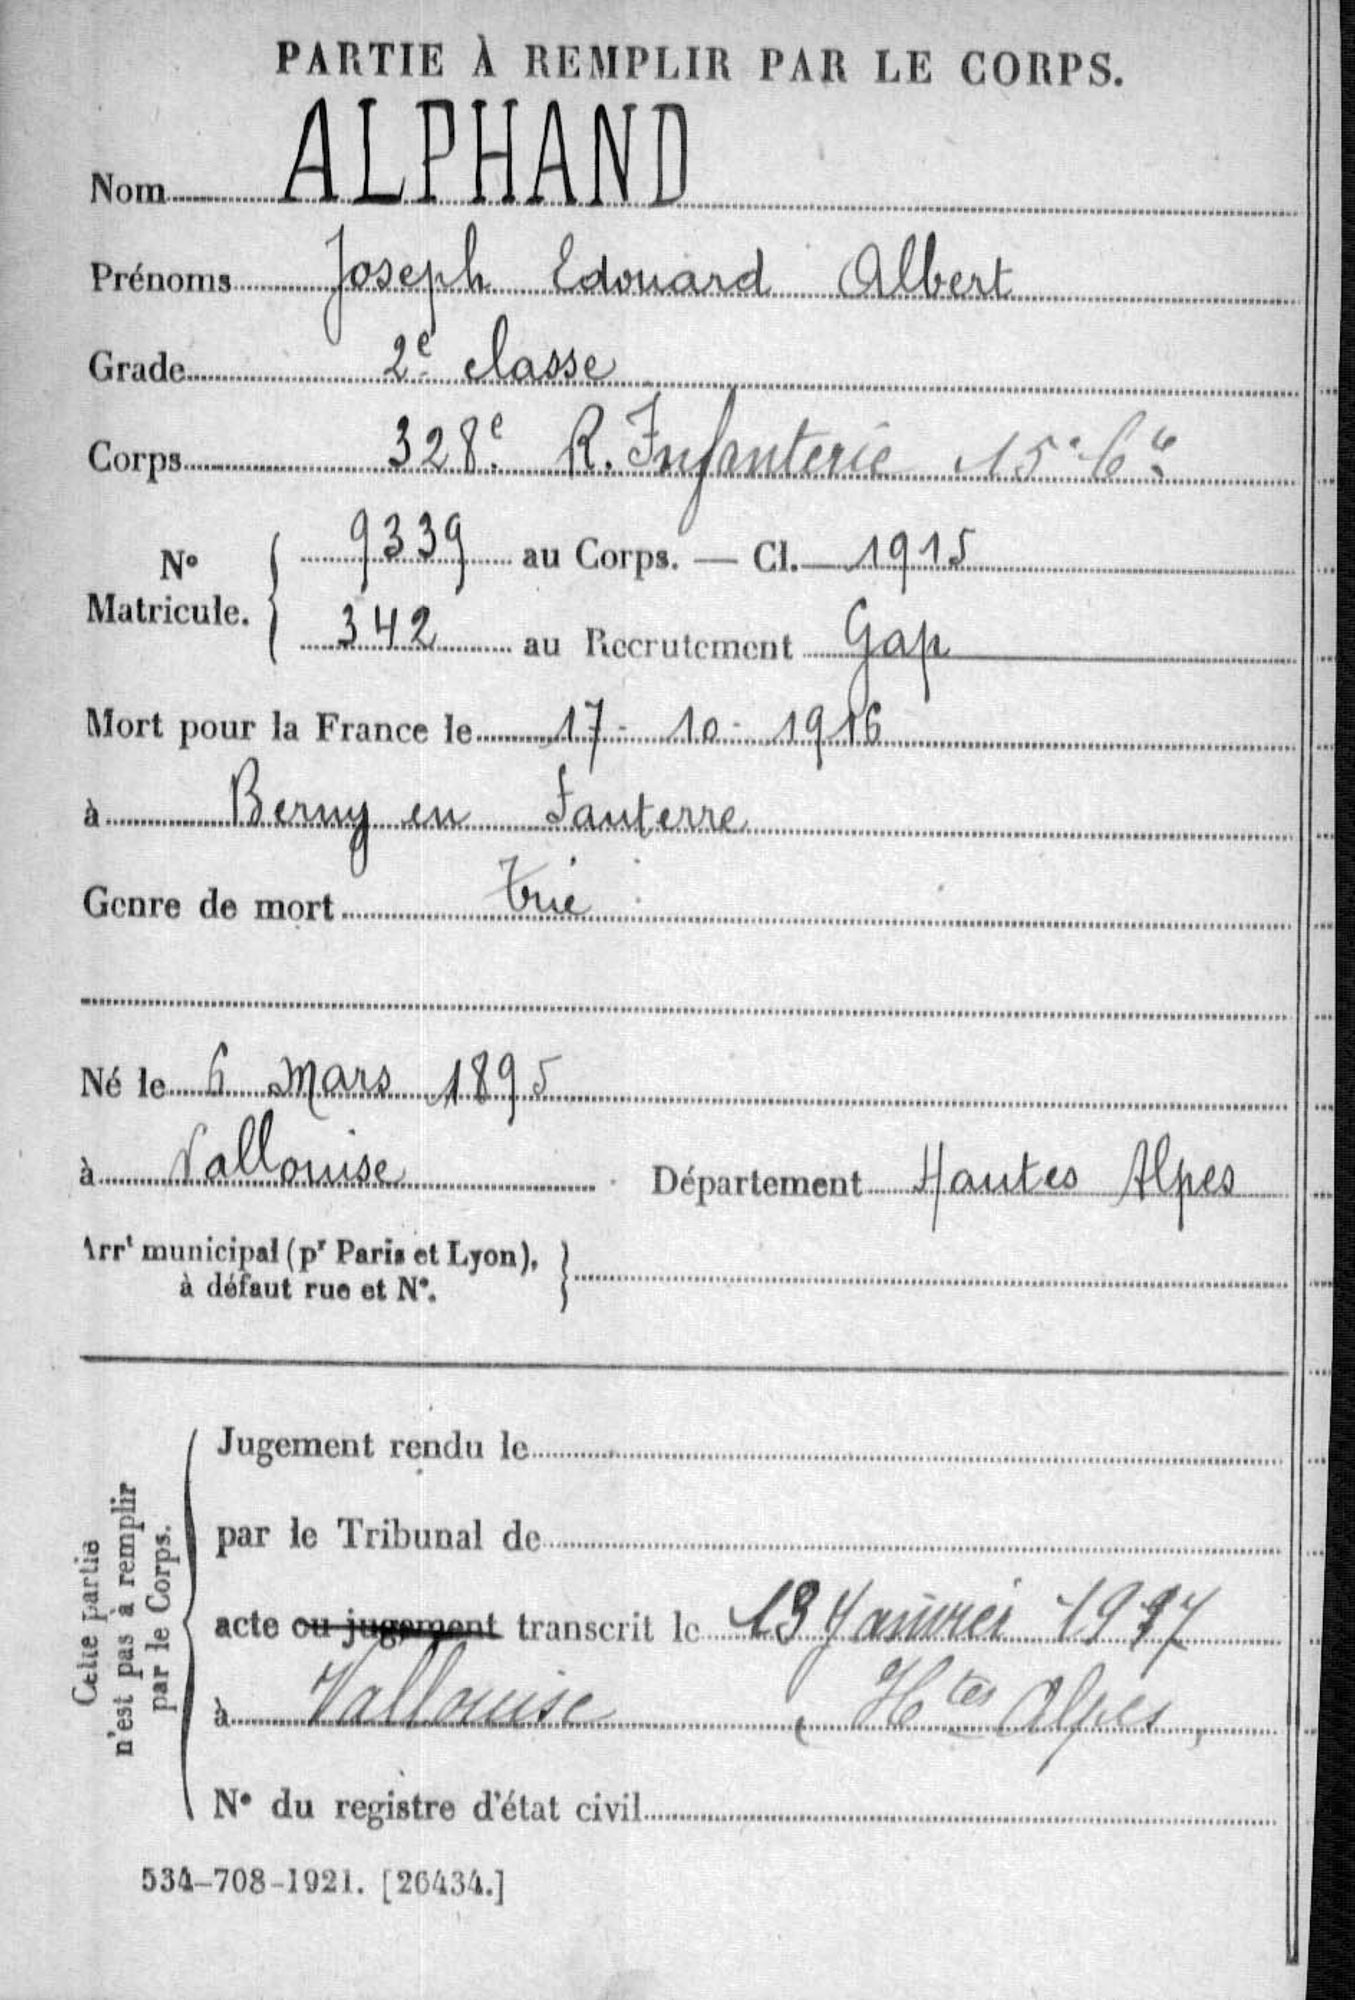 PARTIE À REMPLIR PAR LE CORPS.
Nom ALPHAND
Prénoms Joseph Edouard Albert
Grade 2e classe
Corps 328e R. Infanterie 15e Cie
No Matricule. { 9339 au Corps. — Cl. 1915
342 au Recrutement Gap
Mort pour la France le 17 - 10 - 1916
à Berny en Santerre
Genre de mort tué
Né le 6 mars 1895
à Vallouise Département Hautes Alpes
Arrt municipal (pr Paris et Lyon),
à défaut rue et No.
Cette partie
n'est pas à remplir
par le Corps.
Jugement rendu le
par le Tribunal de
acte ou jugement transcrit le 13 Janvier 1917
à Vallouise (Htes Alpes)
No du registre d'état civil
534-708-1921. [26434.]